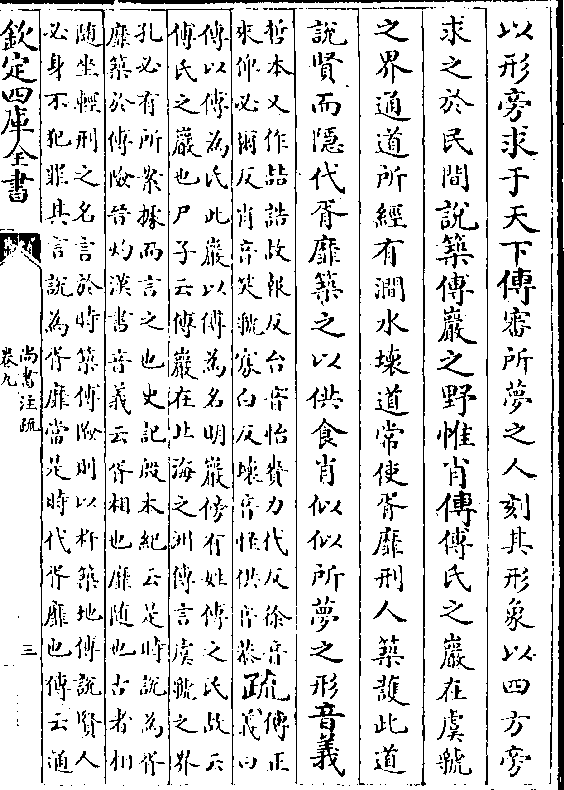 以形旁求于天下傳審所夢之人刻其形象以四方旁
求之於民間說築傅巖之野惟肖傳傅氏之巖在虞虢
之界通道所經有澗水壞道常使胥靡刑人築護此道
說賢而隱代胥靡築之以供食肖似似所夢之形音義
哲本又作喆誥故報反台音怡賚力代反徐音
來仰必爾反肖音笑虢寡白反壞音怪供音恭疏傳正義曰
傳以傅為氏此巖以傅為名明巖傍有姓傅之民故云
傅氏之巖也尸子云傅巖在北海之洲傳言虞虢之界
孔必有所案據而言之也史記殷本紀云是時說為胥
靡築於傅險晉灼漢書音義云胥相也靡隨也古者相
隨坐輕刑之名言於時築傅險則以杵築地傅說賢人
必身不犯罪其言說為胥靡當是時代胥靡也傳云通
欽定四庫全書
尚書注疏
卷九
三